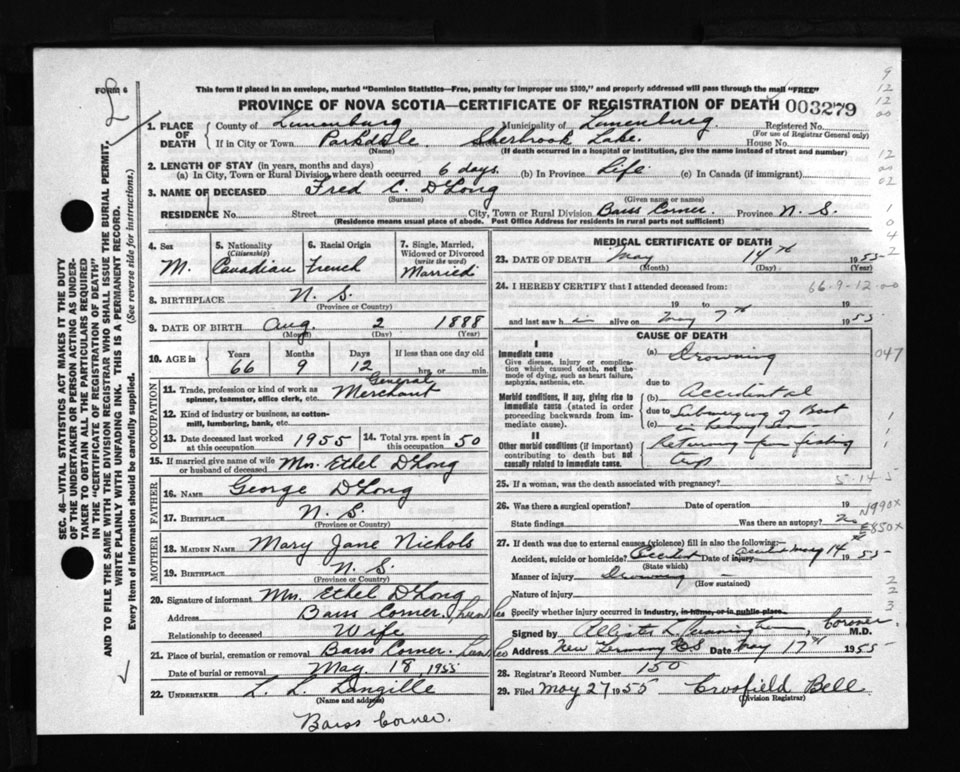 FORM 6
This form if placed in an envelope, marked "Dominion Statistics—Free, penalty for improper use $300," and properly addressed will pass through the mail "FREE"
PROVINCE OF NOVA SCOTIA—CERTIFICATE OF REGISTRATION OF DEATH 003279
1. PLACE OF DEATH County of Lunenburg Municipality of Lunenburg Registered No.
(For use of Registrar General only)
If in City or Town Parkdale Sherbrook Lake. House No.
(Name) (If death occurred in a hospital or institution, give the name instead of street and number)
2. LENGTH OF STAY (in years, months and days)
(a) In City, Town or Rural Division where death occurred 6 days (b) In Province Life (c) In Canada (if immigrant)
3. NAME OF DECEASED Fred C. DeLong
(Surname) (Given name or names)
RESIDENCE No. Street City, Town or Rural Division Barss Corner. Province N. S.
(Residence means usual place of abode. Post Office Address for residents in rural parts not sufficient.)
SEC. 46—VITAL STATISTICS ACT MAKES IT THE DUTY
OF THE UNDERTAKER OR PERSON ACTING AS UNDER-
TAKER TO OBTAIN ALL THE PARTICULARS REQUIRED
IN THE "CERTIFICATE OF REGISTRATION OF DEATH"
AND TO FILE THE SAME WITH THE DIVISION REGISTRAR WHO SHALL ISSUE THE BURIAL PERMIT.
WRITE PLAINLY WITH UNFADING INK. THIS IS A PERMANENT RECORD.
Every item of information should be carefully supplied. (See reverse side for instructions.)
4. Sex M.
5. Nationality (Citizenship) Canadian
6. Racial Origin French
7. Single, Married, Widowed or Divorced (write the word) Married
8. BIRTHPLACE N. S.
(Province or Country)
9. DATE OF BIRTH Aug. 2 1888
(Month) (Day) (Year)
10. AGE in Years 66 Months 9 Days 12 If less than one day old
hrs. or min.
OCCUPATION
11. Trade, profession or kind of work as spinner, teamster, office clerk, etc. General Merchant
12. Kind of industry or business, as cotton-mill, lumbering, bank, etc.
13. Date deceased last worked at this occupation 1955 14. Total yrs. spent in this occupation 50
15. If married give name of wife or husband of deceased Mrs. Ethel DeLong
FATHER
16. NAME George DeLong
17. BIRTHPLACE N. S.
(Province or Country)
MOTHER
18. MAIDEN NAME Mary Jane Nichols
19. BIRTHPLACE N. S.
(Province or Country)
20. Signature of informant Mrs. Ethel DeLong
Address Barss Corner. Lun Co
Relationship to deceased Wife
21. Place of burial, cremation or removal Barss Corner. Lun Co
Date of burial or removal May 18, 1955
22. UNDERTAKER L. L. Langille
(Name and address)
Barss Corner.
MEDICAL CERTIFICATE OF DEATH
23. DATE OF DEATH May 14th 1955
(Month) (Day) (Year)
24. I HEREBY CERTIFY that I attended deceased from: 66-9-12-00
19 to 19
and last saw him alive on May 7th 1955
CAUSE OF DEATH
I
Immediate cause
Give disease, injury or complication which caused death, not the mode of dying, such as heart failure, asphyxia, asthenia, etc.
(a) Drowning
due to
Morbid conditions, if any, giving rise to immediate cause (stated in order proceeding backwards from immediate cause).
(b) Accidental
due to Submerging of Boat
(c) in heavy sea
II
Other morbid conditions (if important) contributing to death but not causally related to immediate cause.
Returning from fishing
trip
047
25. If a woman, was the death associated with pregnancy? 5-14-5
26. Was there a surgical operation? Date of operation 19
State findings Was there an autopsy? No
N990X
E850X
27. If death was due to external causes (violence) fill in also the following:—
Accident, suicide or homicide? Accident Date of injury May 14th 1955
(State which)
Manner of injury Drowning
(How sustained)
Nature of injury
Specify whether injury occurred in industry, in home, or in public place
Signed by Coroner, M.D.
Address New Germany NS Date May 17th 1955
28. Registrar's Record Number 150
29. Filed May 27 1955 Crossfield Bell
(Division Registrar)